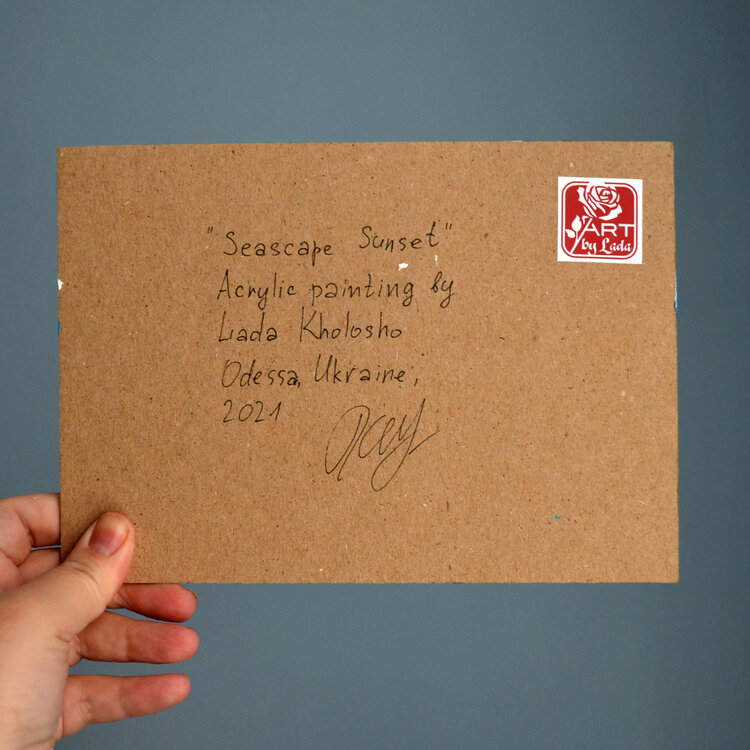 "Seascape Sunset"
Acrylic painting by
Lada Kholosho
Odessa, Ukraine,
2021
ART
by Lada